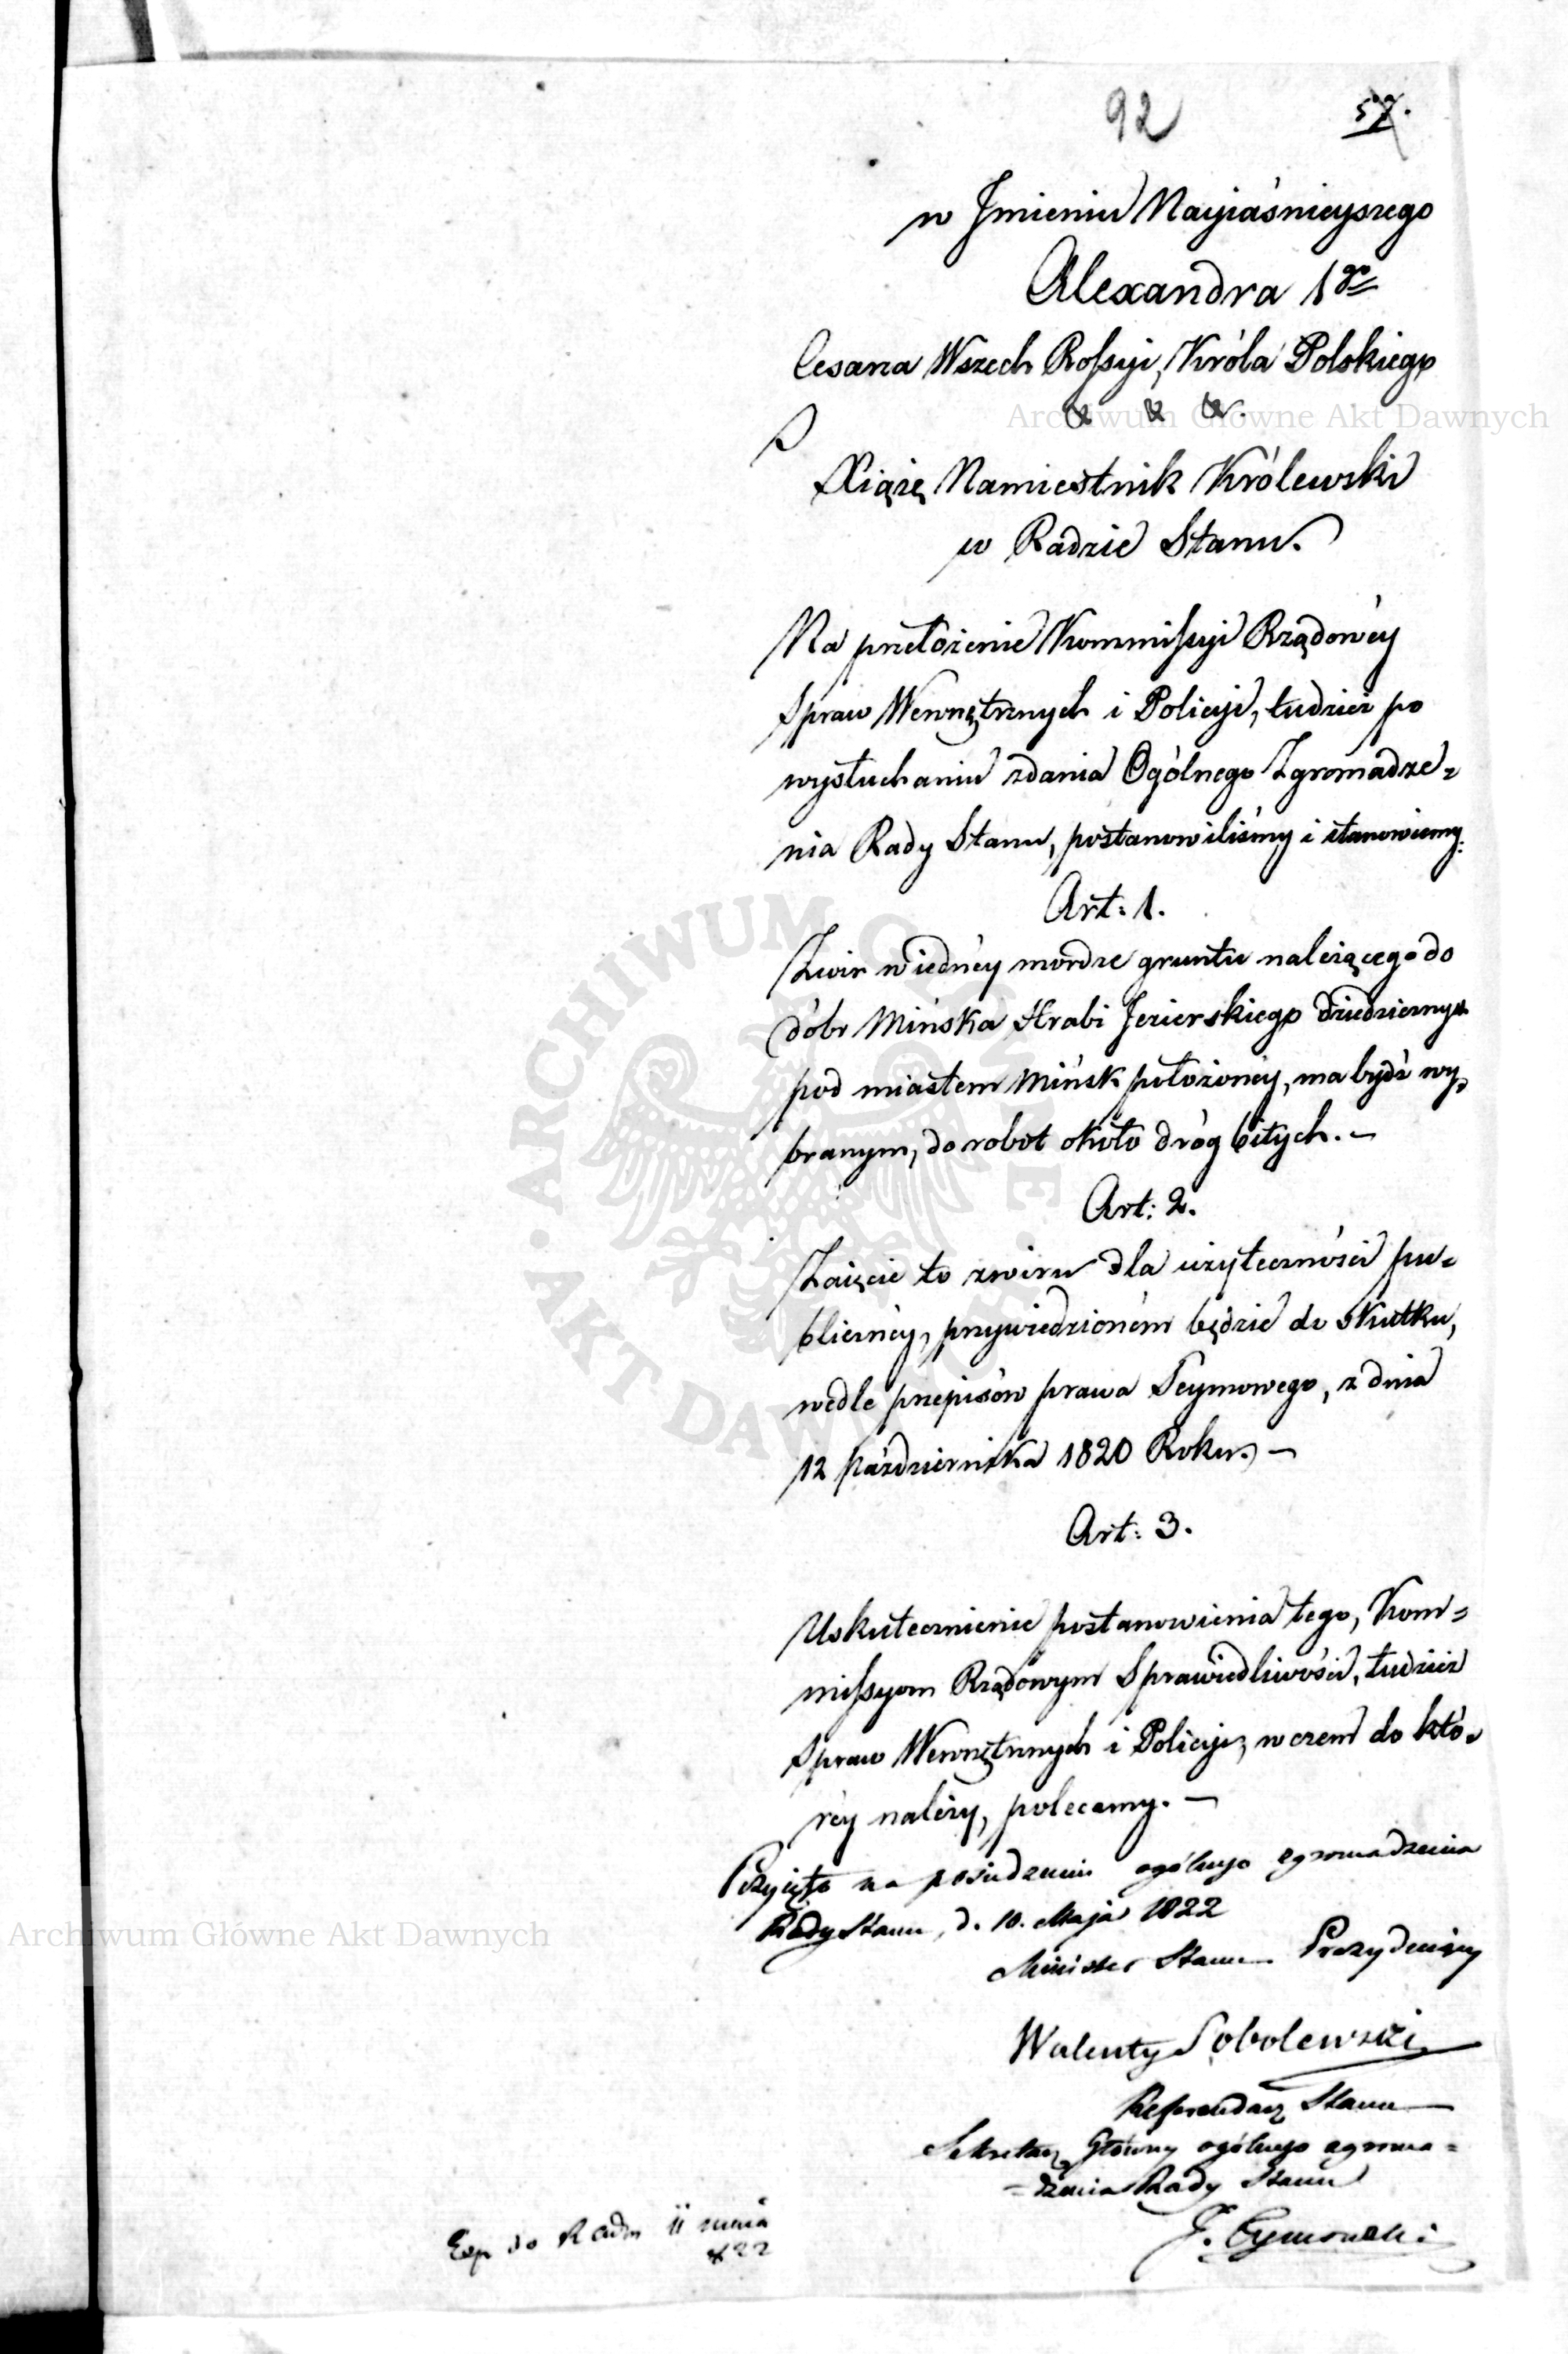 92
57.
w Jmieniu Nayiaśnieyszego
Alexandra 1go
Cesarza Wszech Rossyi, Króla Polskiego
& & &.
Xiążę Namiestnik Królewski
w Radzie Stanu.
Na przełożenie Kommissyi Rządowéy
Spraw Wewnętrznych i Policyi, tudzież po
wysłuchaniu zdania Ogólnego Zgromadze=
nia Rady Stanu, postanowiliśmy i stanowiemy:
Art: 1.
Żwir w iednéy mordze gruntu należącego do
dóbr Mińska Hrabi Jezierskiego dziedzicznych
pod miastem Mińsk położonéy, ma bydź wy=
branym, do robot około dróg bitych. —
Art: 2.
Zaięcie to żwiru dla użyteczności pu=
blicznéy, przywiedzioném będzie do skutku,
wedle przepisów prawa Seymowego, z dnia
12 Października 1820 Roku. —
Art: 3.
Uskutecznienie postanowienia tego, Kom=
missyom Rządowym Sprawiedliwości, tudzież
Spraw Wewnętrznych i Policyi, w czem do któ=
réy należy, polecamy. —
Przyięto na posiedzeniu ogólnego zgromadzenia
Rady Stanu, d. 10. Maja 1822
Minister Stanu Prezyduiący
Walenty Sobolewski
Referendarz Stanu
Sekretarz Główny ogólnego zgroma=
=dzenia Rady Stanu
J.
Exp do Radm 11 maia
822
Archiwum Główne Akt Dawnych
Archiwum Główne Akt Dawnych
ARCHIWUM GŁÓWNE
AKT DAWNYCH